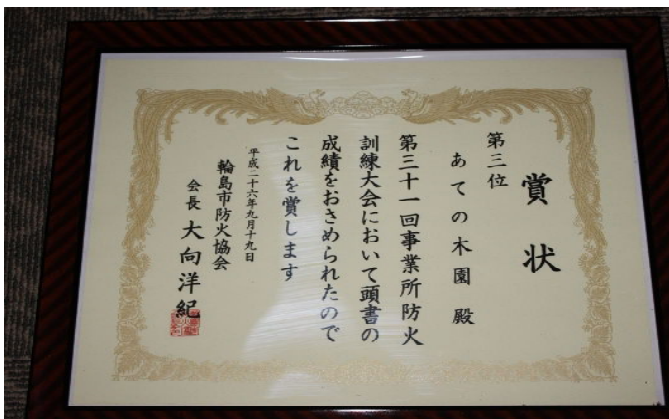 賞状
第三位
あての木園 殿
第三十一回事業所防火
訓練大会において頭書の
成績をおさめられたので
これを賞します
平成二十六年九月十九日
輪島市防火協会
会長 大向洋紀